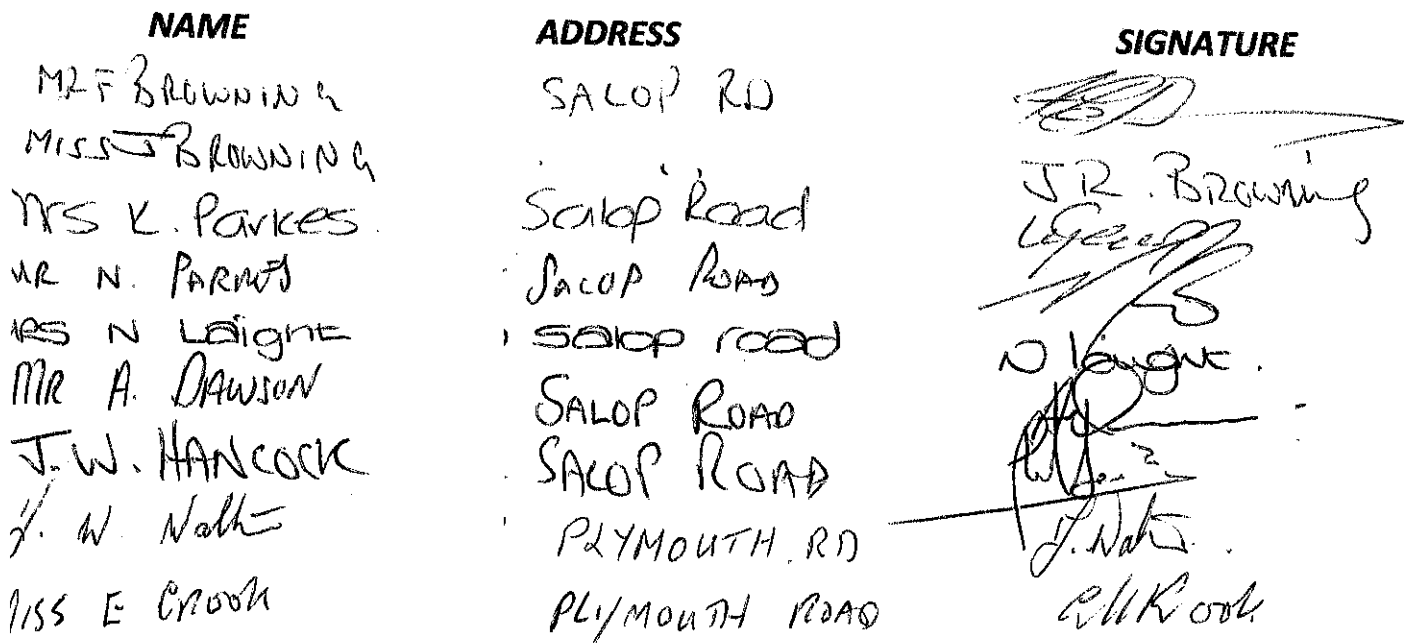 NAME ADDRESS SIGNATURE
MR F BROWNING SALOP RD
MISS J BROWNING J R. BROWNING
MRS K. Parkes. Salop Road
MR N. PARKES SALOP ROAD
MRS N Laight salop road N laight.
MR A. DAWSON SALOP ROAD
J.W. HANCOCK SALOP ROAD
W. PLYMOUTH. RD
MISS E CROOK PLYMOUTH ROAD